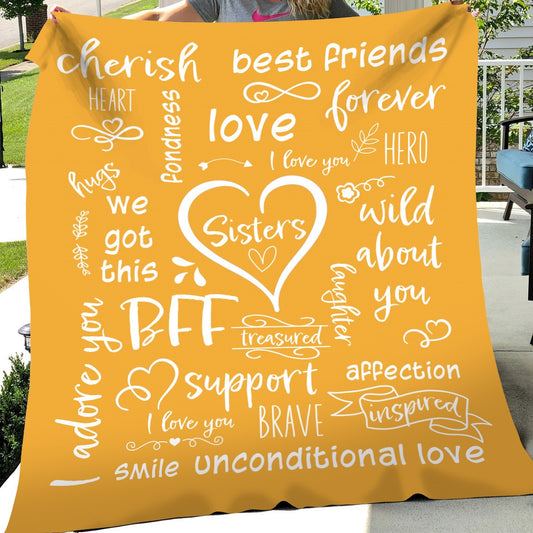 cherish
best friends
HEART
fondness
love
forever
I love you
HERO
hugs
we
got
this
Sisters
wild
about
you
laughter
BFF
treasured
I adore you
support
affection
I love you
BRAVE
inspired
smile unconditional love